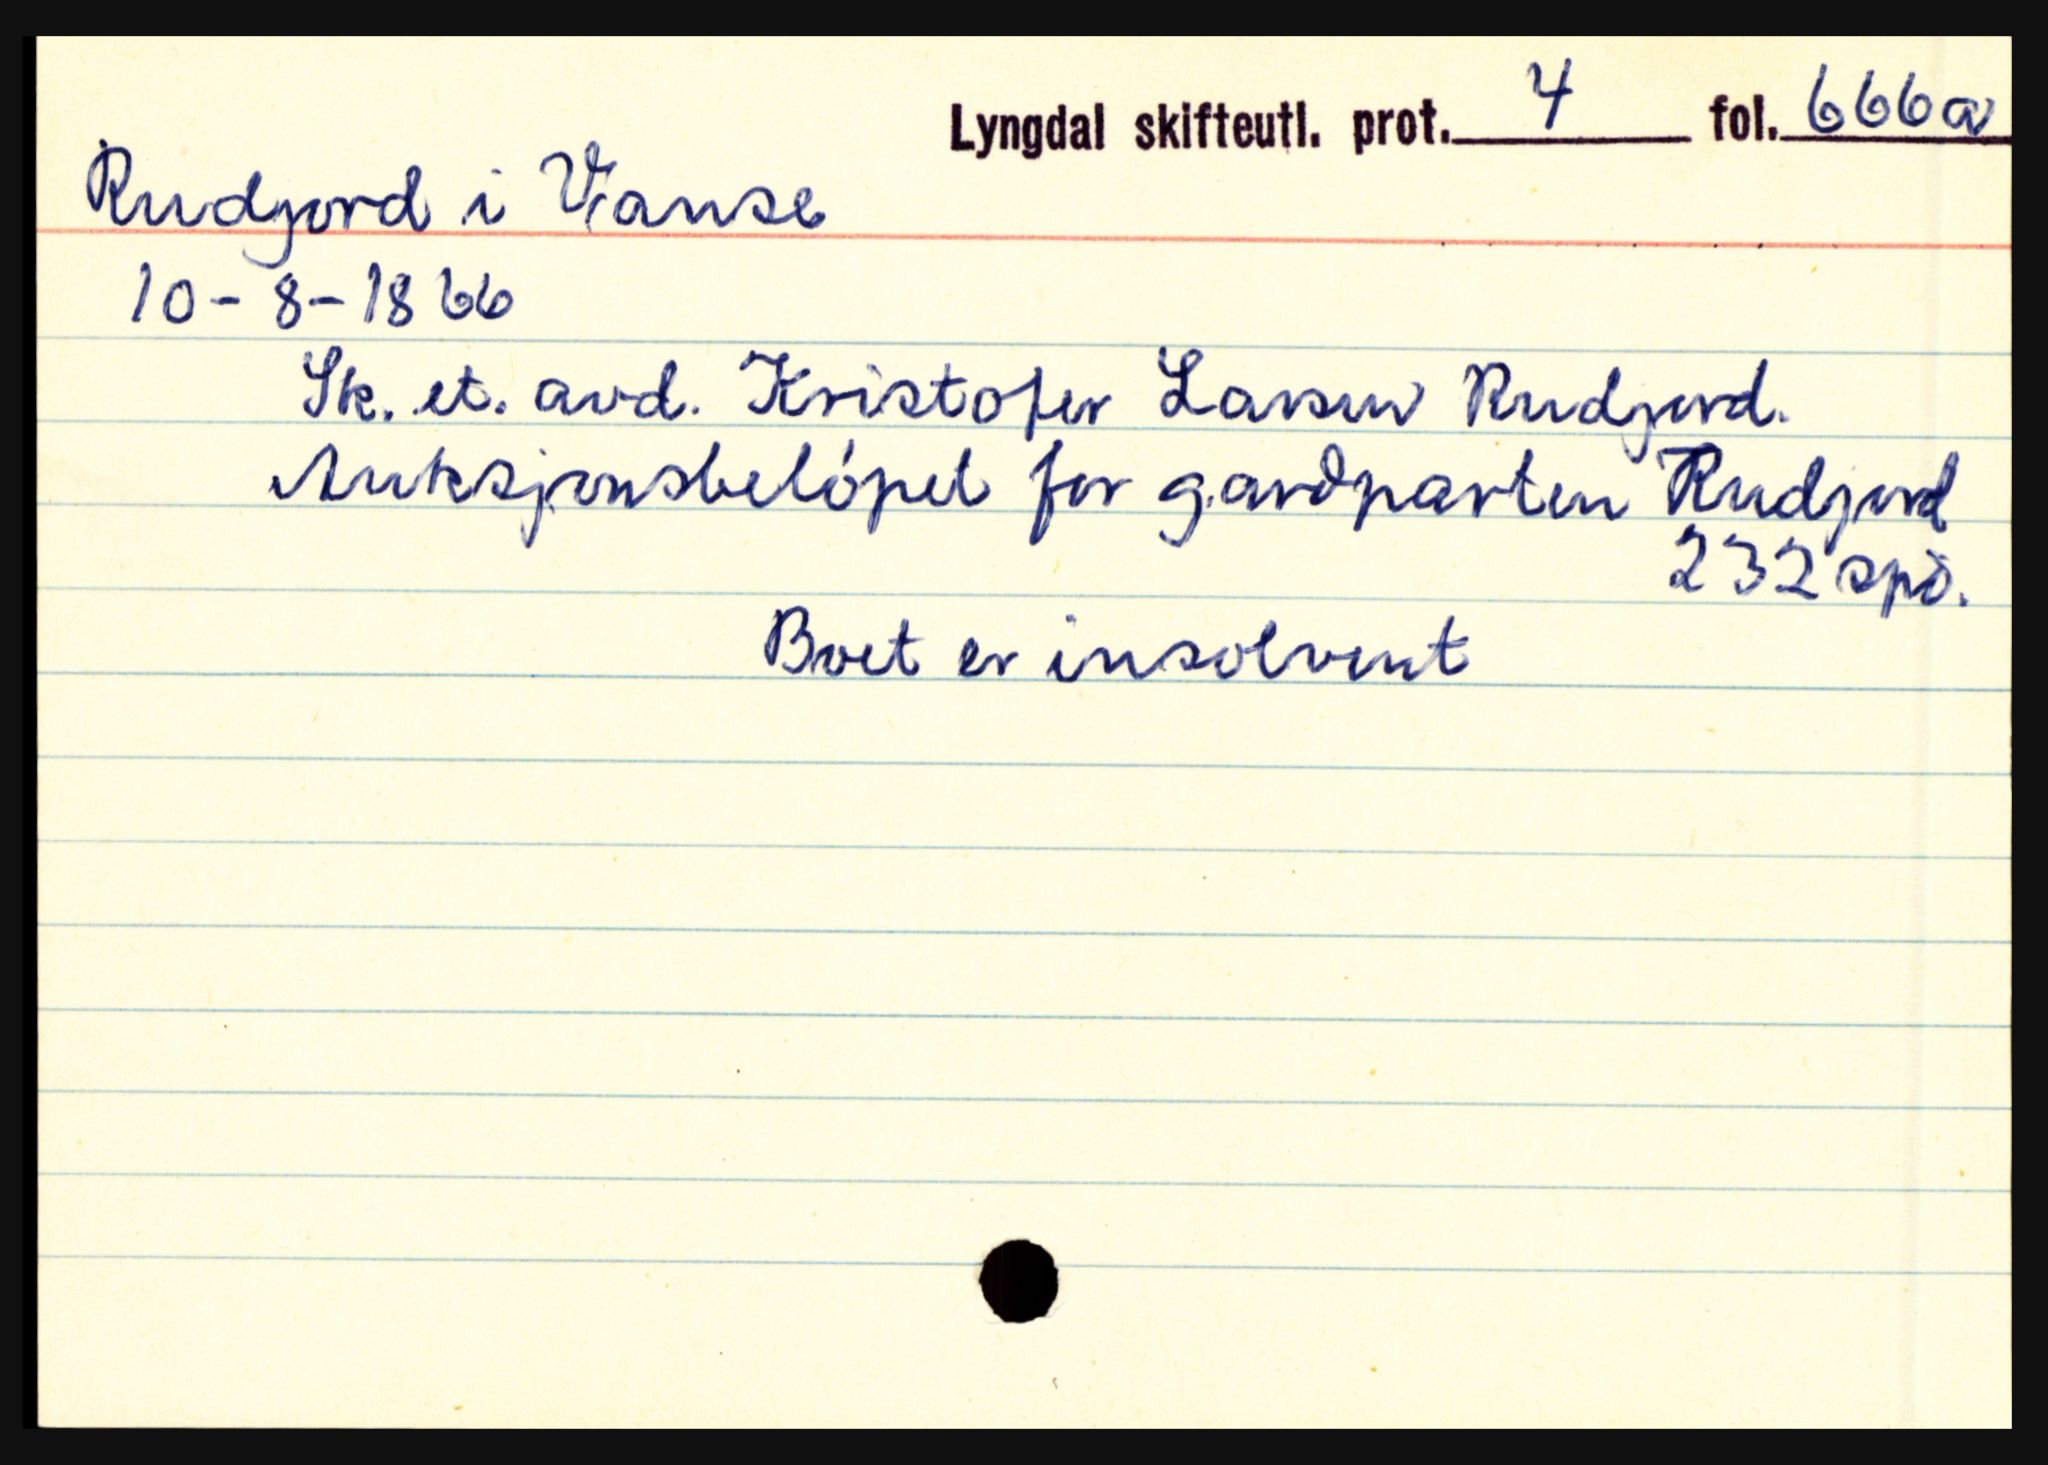 Lyngdal skifteutl. prot. 4 fol. 666a
Rudjord i Vanse
10-8-1866
Sk. et. avd. Kristofer Larsen Rudjord.
Auksjonsbeløpet for gardparten Rudjord
232 spd.
Boet er insolvent